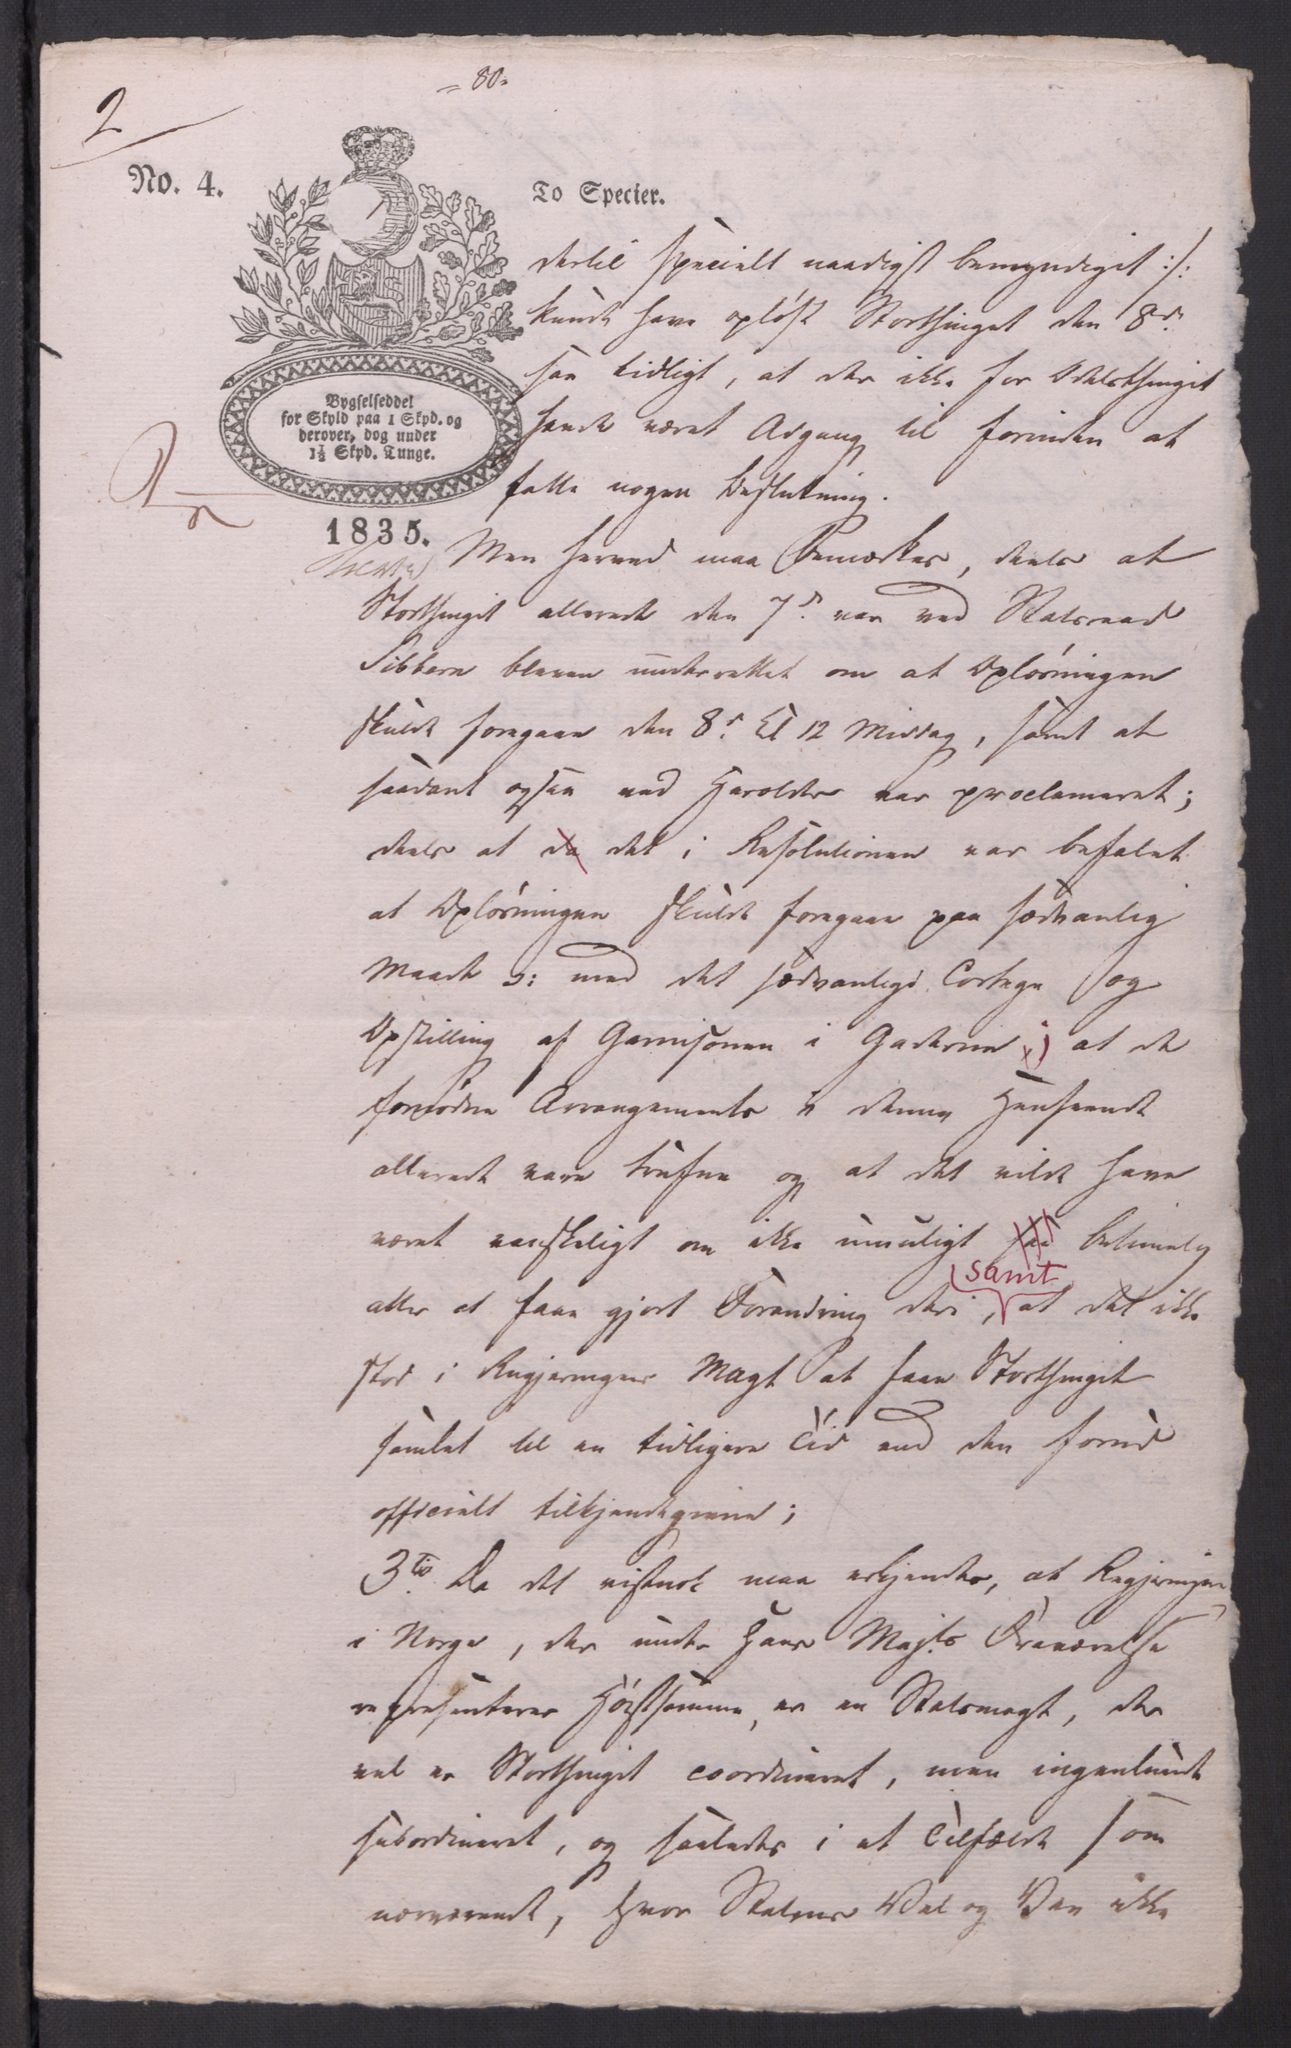 = 80 =
2
No. 4.
To Specier.
dertil specielt naadigst bemyndiget :/:
kunde have opløst Storthinget den 8de
saa tidligt, at der ikke for Odelsthinget
havde været Adgang til forinden at
fatte nogen Beslutning.
Bygselseddel
for Skyld paa 1 Skpd. og
derover, dog under
1½ Skpd. Tunge.
1835.
Men herved maa bemærkes, deels at
Storthinget allerede den 7de var ved Statsraad
Sibbern bleven underrettet om at Opløsningen
skulde foregaae den 8de Kl 12 Middag, samt at
saadant ogsaa ved Herolder var proclameret;
deels at da det i Resolutionen var befalet
at Opløsningen skulde foregaae paa sædvanlig
Maade ɔ: med det sædvanlige Cortege og
Opstilling af Garnisonen i Gaderne; at de
fornødne Arrangements i denne Henseende
allerede vare trufne og at det vilde have
været vanskeligt om ikke umuligt saa betimelig
samt
atter at faae gjort Forandring deri, at det ikke
stod i Regjeringens Magt at faae Storthinget
samlet til en tidligere Tid end den forud
officielt tilkjendegivne;
3tio Da det vistnok maa erkjendes, at Regjeringen
i Norge, der under Hans Majts Fraværelse
repræsenterer Høistsamme, er en Statsmagt, der
vel er Storthinget coordineret, men ingenlunde
subordineret, og saaledes i et Tilfælde som
nærværende, hvor Statens Vel og Vee ikke